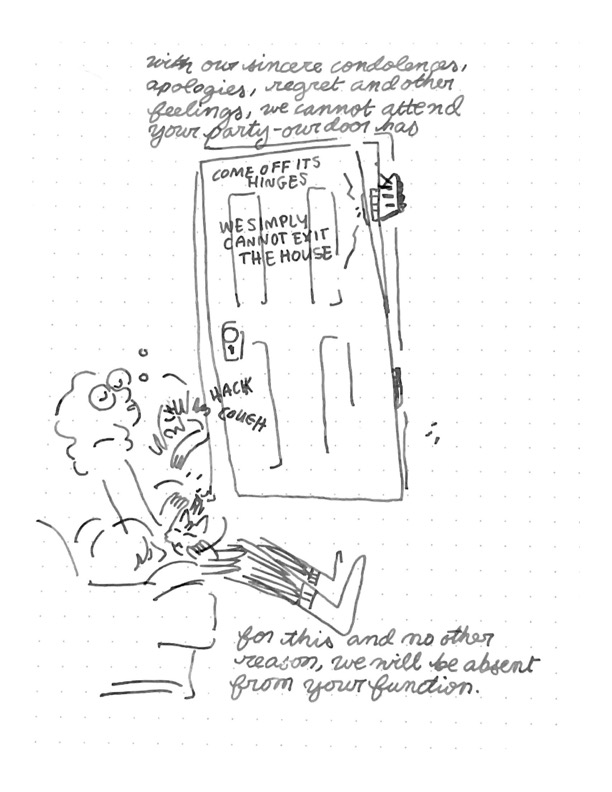 with our sincere condolences,
apologies, regret and other
feelings, we cannot attend
your party-our door has
COME OFF ITS
HINGES
WE SIMPLY
CANNOT EXIT
THE HOUSE
HACK
COUGH
for this and no other
reason, we will be absent
from your function.